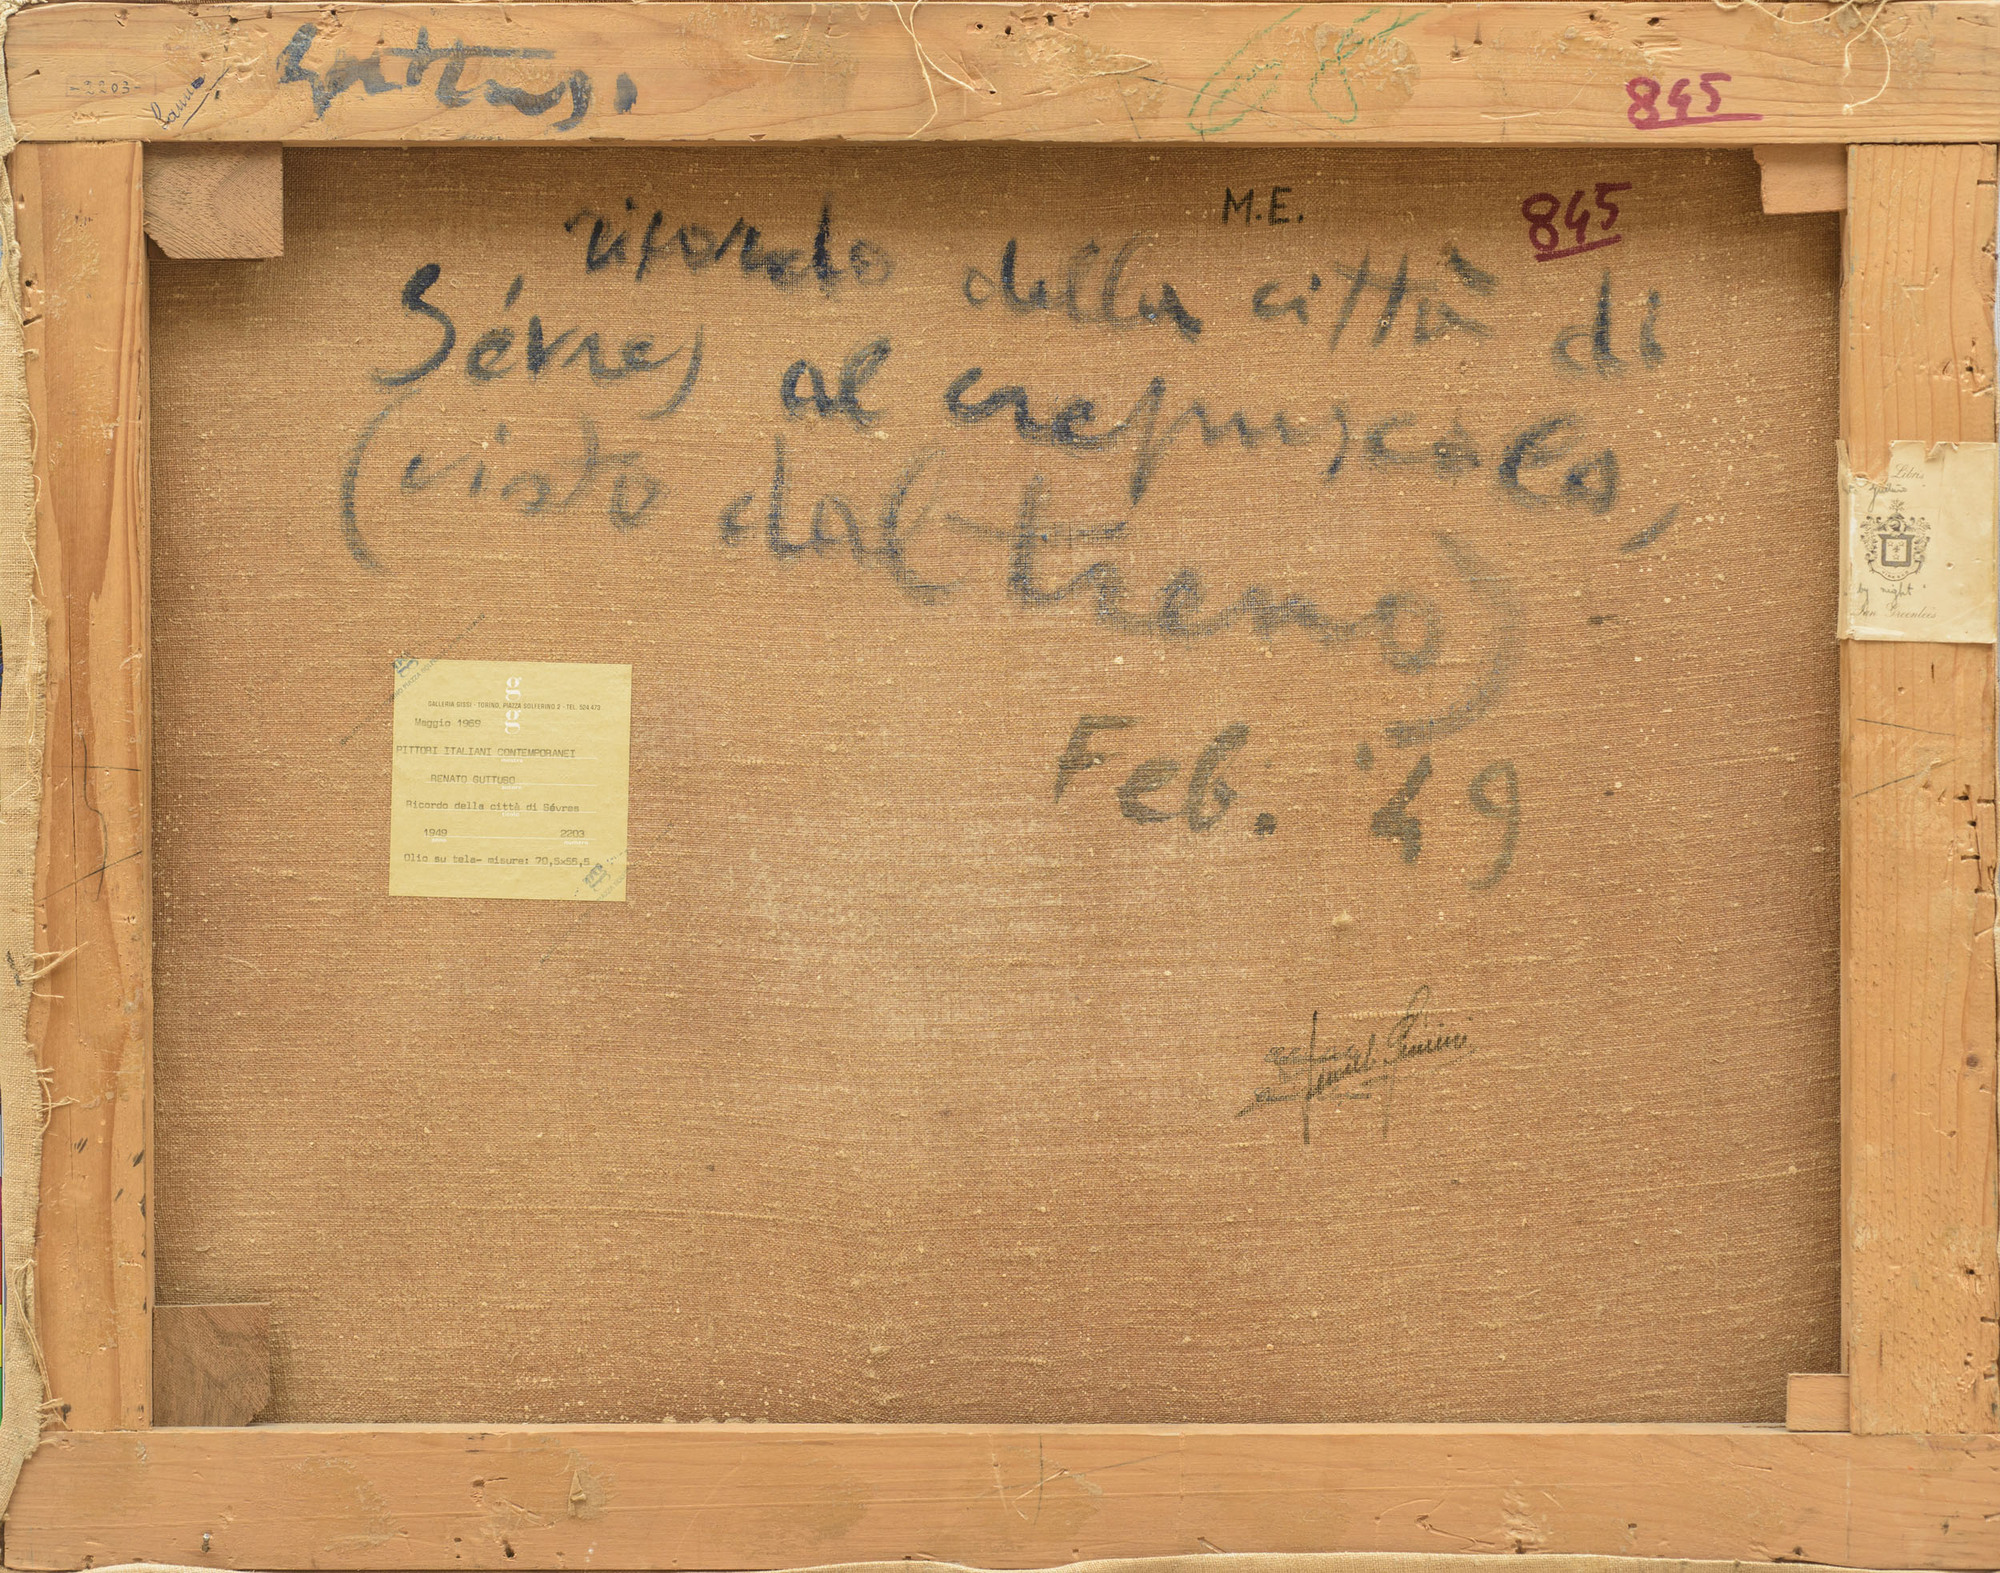 -2203-
Guttuso
845
M.E.
845
ricordo della città di
Sévres al crepuscolo,
(visto dal treno)
Feb. '49
Libris
by night
Ian Greenlees
g
GALLERIA GISSI - TORINO, PIAZZA SOLFERINO 2 - TEL. 504.473
g
Maggio 1969
PITTORI ITALIANI CONTEMPORANEI
mostra
RENATO GUTTUSO
autore
Ricordo della città di Sévres
titolo
1949 2203
anno numero
Olio su tela- misure: 70,5x56,5